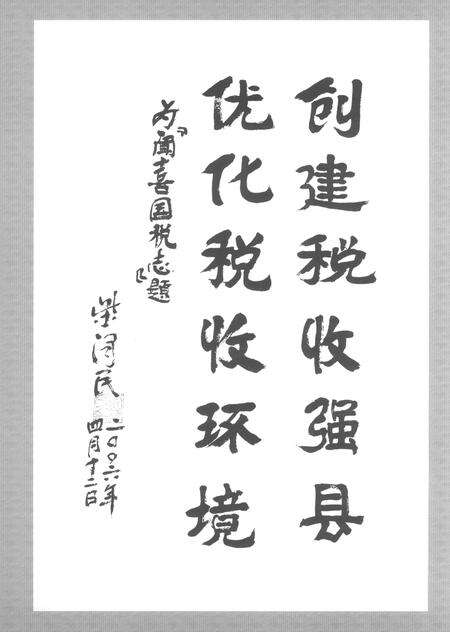 创建税收强县
优化税收环境
为闻喜国税志题
柴泽民
二〇〇六年
四月十二日